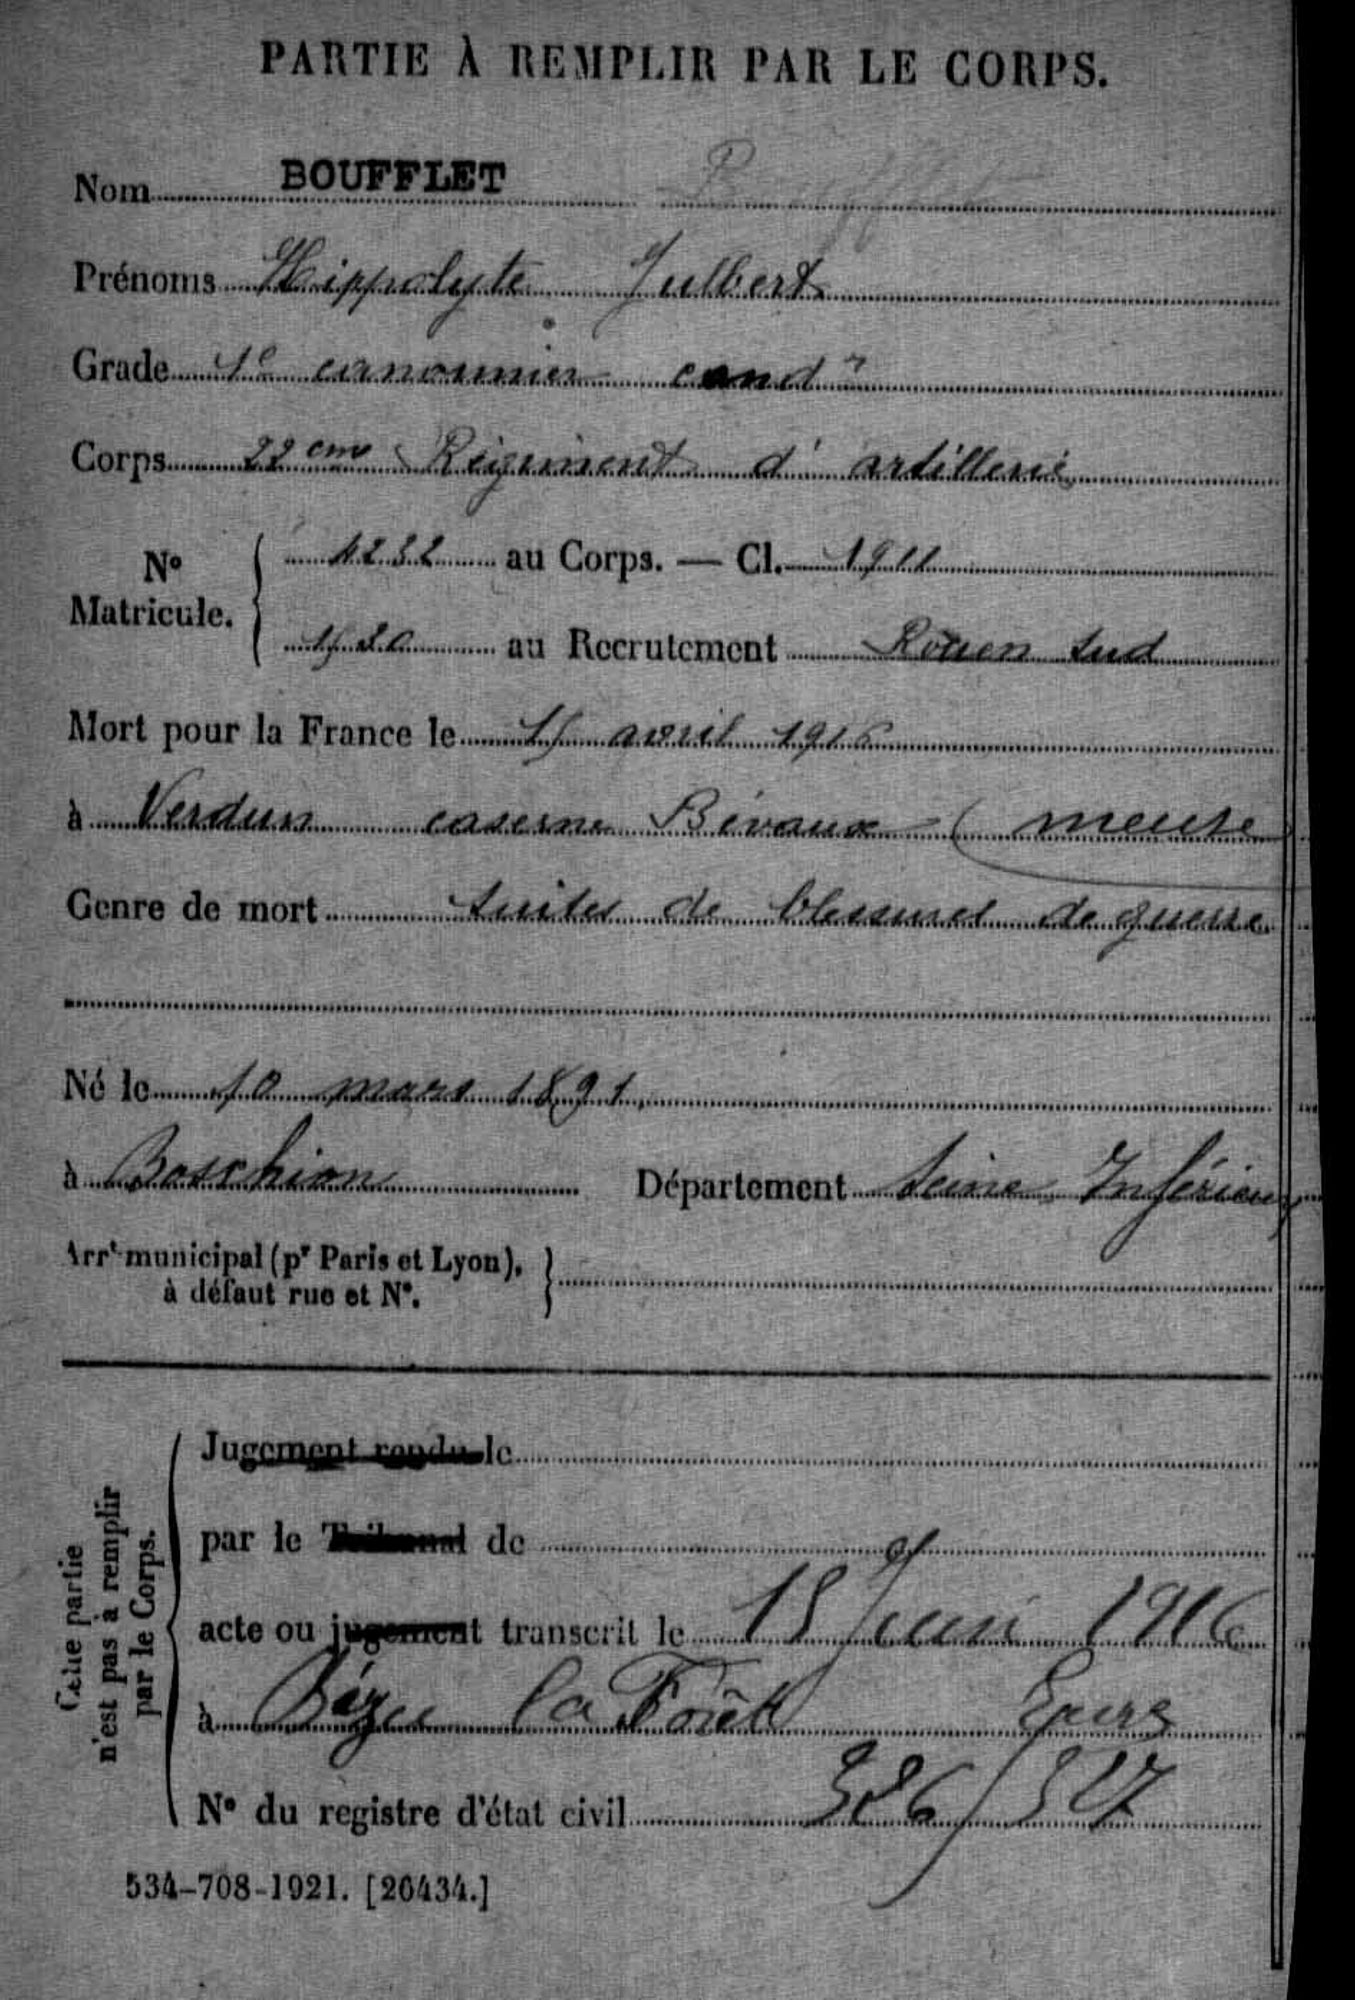 PARTIE À REMPLIR PAR LE CORPS.
Nom BOUFFLET
Prénoms Hippolyte Julbert
Grade 1e canonnier condr
Corps 22eme Régiment d'artillerie
No Matricule. 4232 au Corps. — Cl. 1911
au Recrutement Rouen Sud
Mort pour la France le avril 1916
à Verdun caserne Bévaux (meuse
Genre de mort suites de blessures de guerre
Né le 10 mars 1891
à Boschion Département Seine Inférieur
Arrt municipal (pr Paris et Lyon), à défaut rue et No.
Cette partie n'est pas à remplir par le Corps.
Jugement rendu le
par le Tribunal de
acte ou jugement transcrit le 15 juin 1916
à Bézu la Forêt Eure
No du registre d'état civil 326/327
534-708-1921. [26434.]